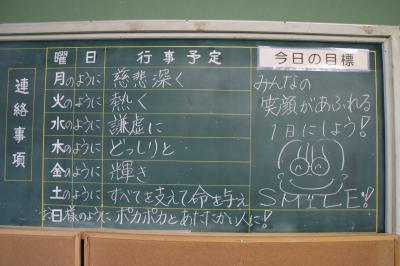 連絡事項
曜日 行事予定
月のように 慈悲深く
火のように 熱く
水のように 謙虚に
木のように どっしりと
金のように 輝き
土のように すべてを支えて命を与え
お日様のように ポカポカとあたたかい人に!
今日の目標
みんなの
笑顔があふれる
1日にしよう!
SMILE!!